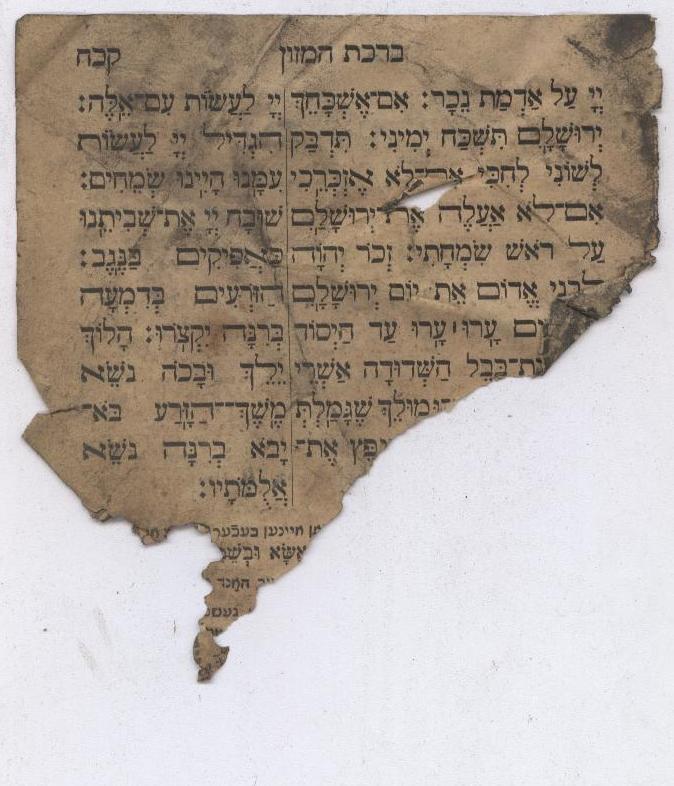 ברכת המזון
קכח
יְיָ עַל אַדְמַת נֵכָר: אִם־אֶשְׁכָּחֵךְ
יְרוּשָׁלָםִ תִּשְׁכַּח יְמִינִי: תִּדְבַּק
לְשׁוֹנִי לְחִכִּי אִם־לֹא אֶזְכְּרֵכִי
אִם־לֹא אַעֲלֶה אֶת יְרוּשָׁלַםִ
עַל רֹאשׁ שִׂמְחָתִי: זְכֹר יְהֹוָה
לִבְנֵי אֱדוֹם אֵת יוֹם יְרוּשָׁלָםִ
עָרוּ עָרוּ עַד הַיְסוֹד
בָּבֶל הַשְּׁדוּדָה אַשְׁרֵי
גְּמוּלֵךְ שֶׁגָּמַלְתְּ
אֶת־
יְיָ לַעֲשׂוֹת עִם־אֵלֶּה:
הִגְדִּיל יְיָ לַעֲשׂוֹת
עִמָּנוּ הָיִינוּ שְׂמֵחִים:
שׁוּבָה יְיָ אֶת־שְׁבִיתֵנוּ
כַּאֲפִיקִים בַּנֶּגֶב:
הַזֹּרְעִים בְּדִמְעָה
בְּרִנָּה יִקְצֹרוּ: הָלוֹךְ
יֵלֵךְ וּבָכֹה נֹשֵׂא
מֶשֶׁךְ־הַזָּרַע בֹּא־
יָבֹא בְרִנָּה נֹשֵׂא
אֲלֻמֹּתָיו:
מיינען בעכער
אֶשָּׂא